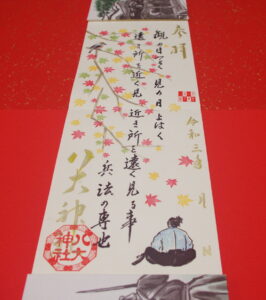 奉拝
観の目つよく 見の目よはく
遠き所を近く見
近き所を遠く見る事
兵法の専也
令和三年 月 日
八大神社